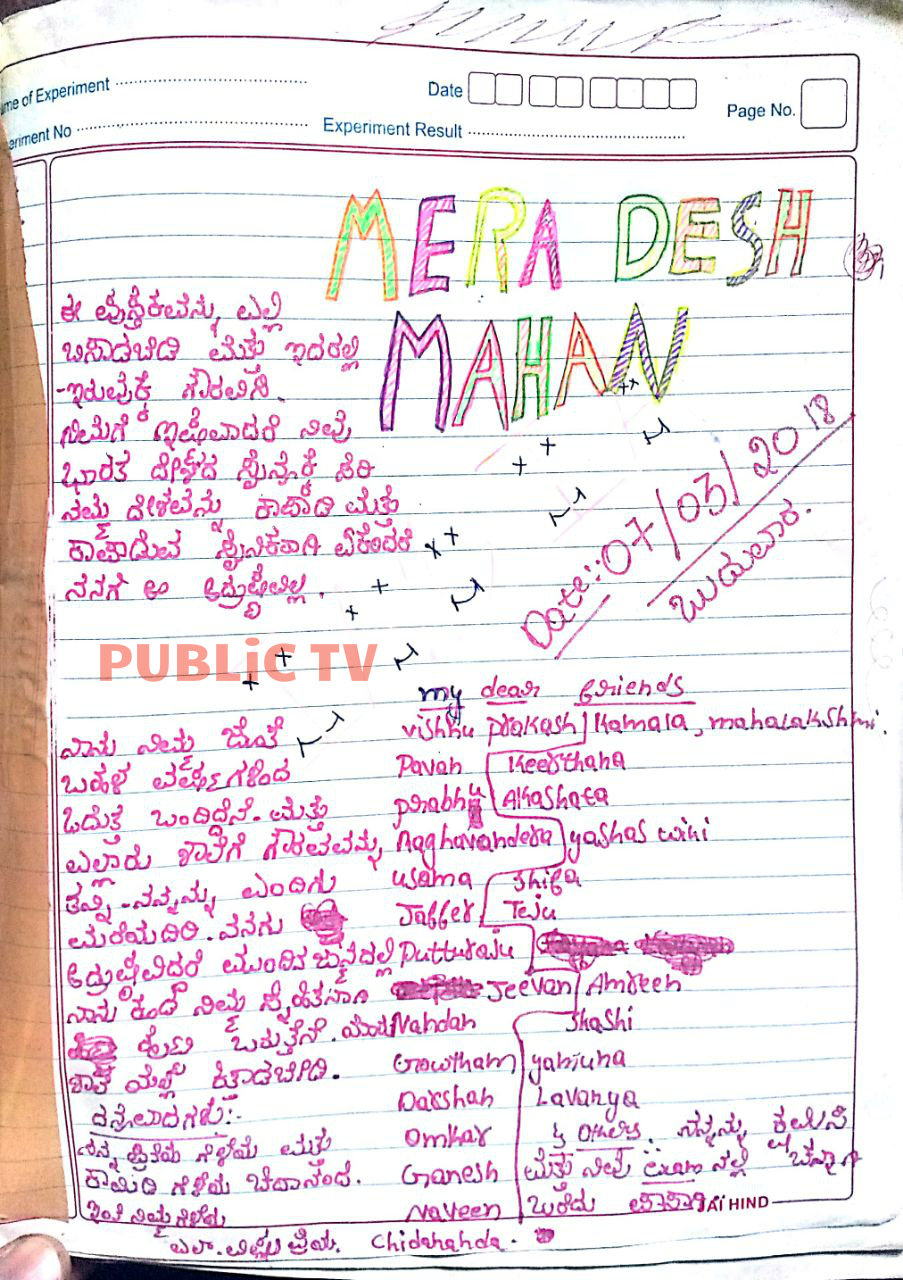 Name of Experiment
Date
Page No.
Experiment No
Experiment Result
MERA DESH
MAHAN
ಈ ಪುಸ್ತಕವನ್ನು ಎಲ್ಲಿ
ಬಿಸಾಡಬೇಡಿ ಮತ್ತು ಇದರಲ್ಲಿ
ಇರುವುಕ್ಕೆ ಗೌರವಿಸಿ.
ನಿಮಗೆ ಇಷ್ಟವಾದರೆ ನೀವು
ಭಾರತ ದೇಶದ ಸೈನ್ಯಕ್ಕೆ ಸೇರಿ
ನಮ್ಮ ದೇಶವನ್ನು ಕಾಪಾಡಿ ಮತ್ತು
ಕಾಪಾಡುವ ಸೈನಿಕರಾಗಿ ಏಕೆಂದರೆ
ನನಗೆ ಆ ಅದ್ರುಷ್ಟವಿಲ್ಲ.
Date: 07/03/2018
ಬುದುವಾರ.
PUBLiC TV
my dear friends
ನಾನು ನಿಮ್ಮ ಜೊತೆ
ಬಹಳ ವರ್ಷಗಳಿಂದ
ಓದುತ್ತ ಬಂದಿದ್ದೆನೆ. ಮತ್ತು
ಎಲ್ಲಾರು ಶಾಲೆಗೆ ಗೌರವವನ್ನು
ತನ್ನಿ - ನನ್ನನ್ನು ಎಂದಿಗು
ಮರೆಯದಿರಿ. ನನಗು
ಅದ್ರುಷ್ಟವಿದರೆ ಮುಂದಿನ ಜನ್ಮದಲ್ಲಿ
ನಾನು ಕಂಡೆ ನಿಮ್ಮ ಸ್ನೇಹಿತನಾಗಿ
ಹುಟ್ಟಿ ಬರುತ್ತೇನೆ.
ಕೂಡಬೇಡಿ.
ದನ್ಯವಾದಗಳು:-
ನನ್ನ ಪ್ರೀತಿಯ ಗೆಳೆಯ ಮತ್ತು
ಕಾಮಿಡಿ ಗೆಳೆಯ ಚಿದಾನಂದ.
ಇಂತಿ ನಿಮ್ಮ ಗೆಳೆಯ
vishnu prakash Kamala, mahalakshmi.
Pavan Keerthana
prabhu Akashata
Raghavandera yashaswini
usama shifa
Jaffer Teju
Putturaju
Jeevan Amreen
Nandan Shashi
Gowtham yamuna
Darshan Lavanya
Omkar & Others. ನನ್ನನ್ನು ಕ್ಷಮಿಸಿ
Ganesh ಮತ್ತು ನೀವು exam ನಲ್ಲಿ ಚನ್ನಾಗಿ
Naveen ಬರೆದು ಪಾಸಾಗಿ
Chidananda.
JAI HIND